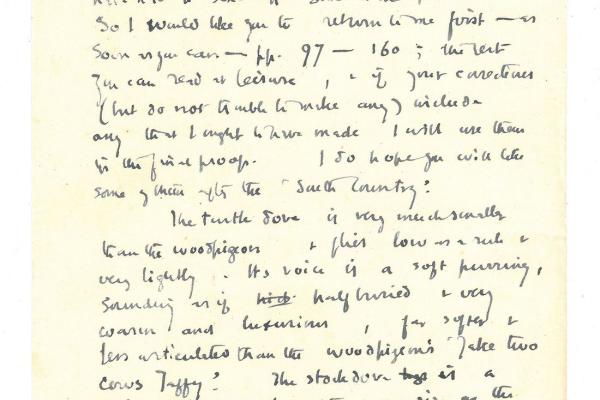 So I would like you to return to me first — as
soon as you can — pp. 97 — 160; the rest
you can read at leisure, & if your corrections
(but do not trouble to make any) include
any that I ought to have made I will use them
in the final proof. I do hope you will like
some of them after the "South Country".
The turtle dove is very much smaller
than the woodpigeon & flies low as a rule &
very lightly. Its voice is a soft purring,
sounding as if half buried & very
warm and luxurious, far softer &
less articulated than the woodpigeon's "Take two
cows Taffy". The stockdove is a